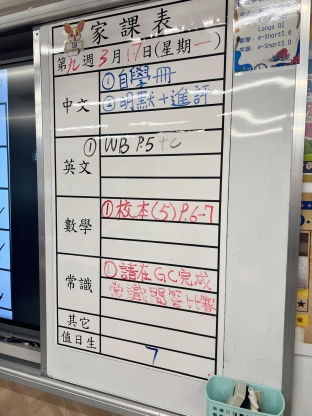 家課表
第九週 3月17日(星期一)
中文
①自學冊
②明默+進評
英文
① WB P.5 +c
數學
①校本(5)P.6-7
常識
①請在GC完成
常識問答比賽
其它
值日生
7
e-Smart2.0
e-Smart2.0